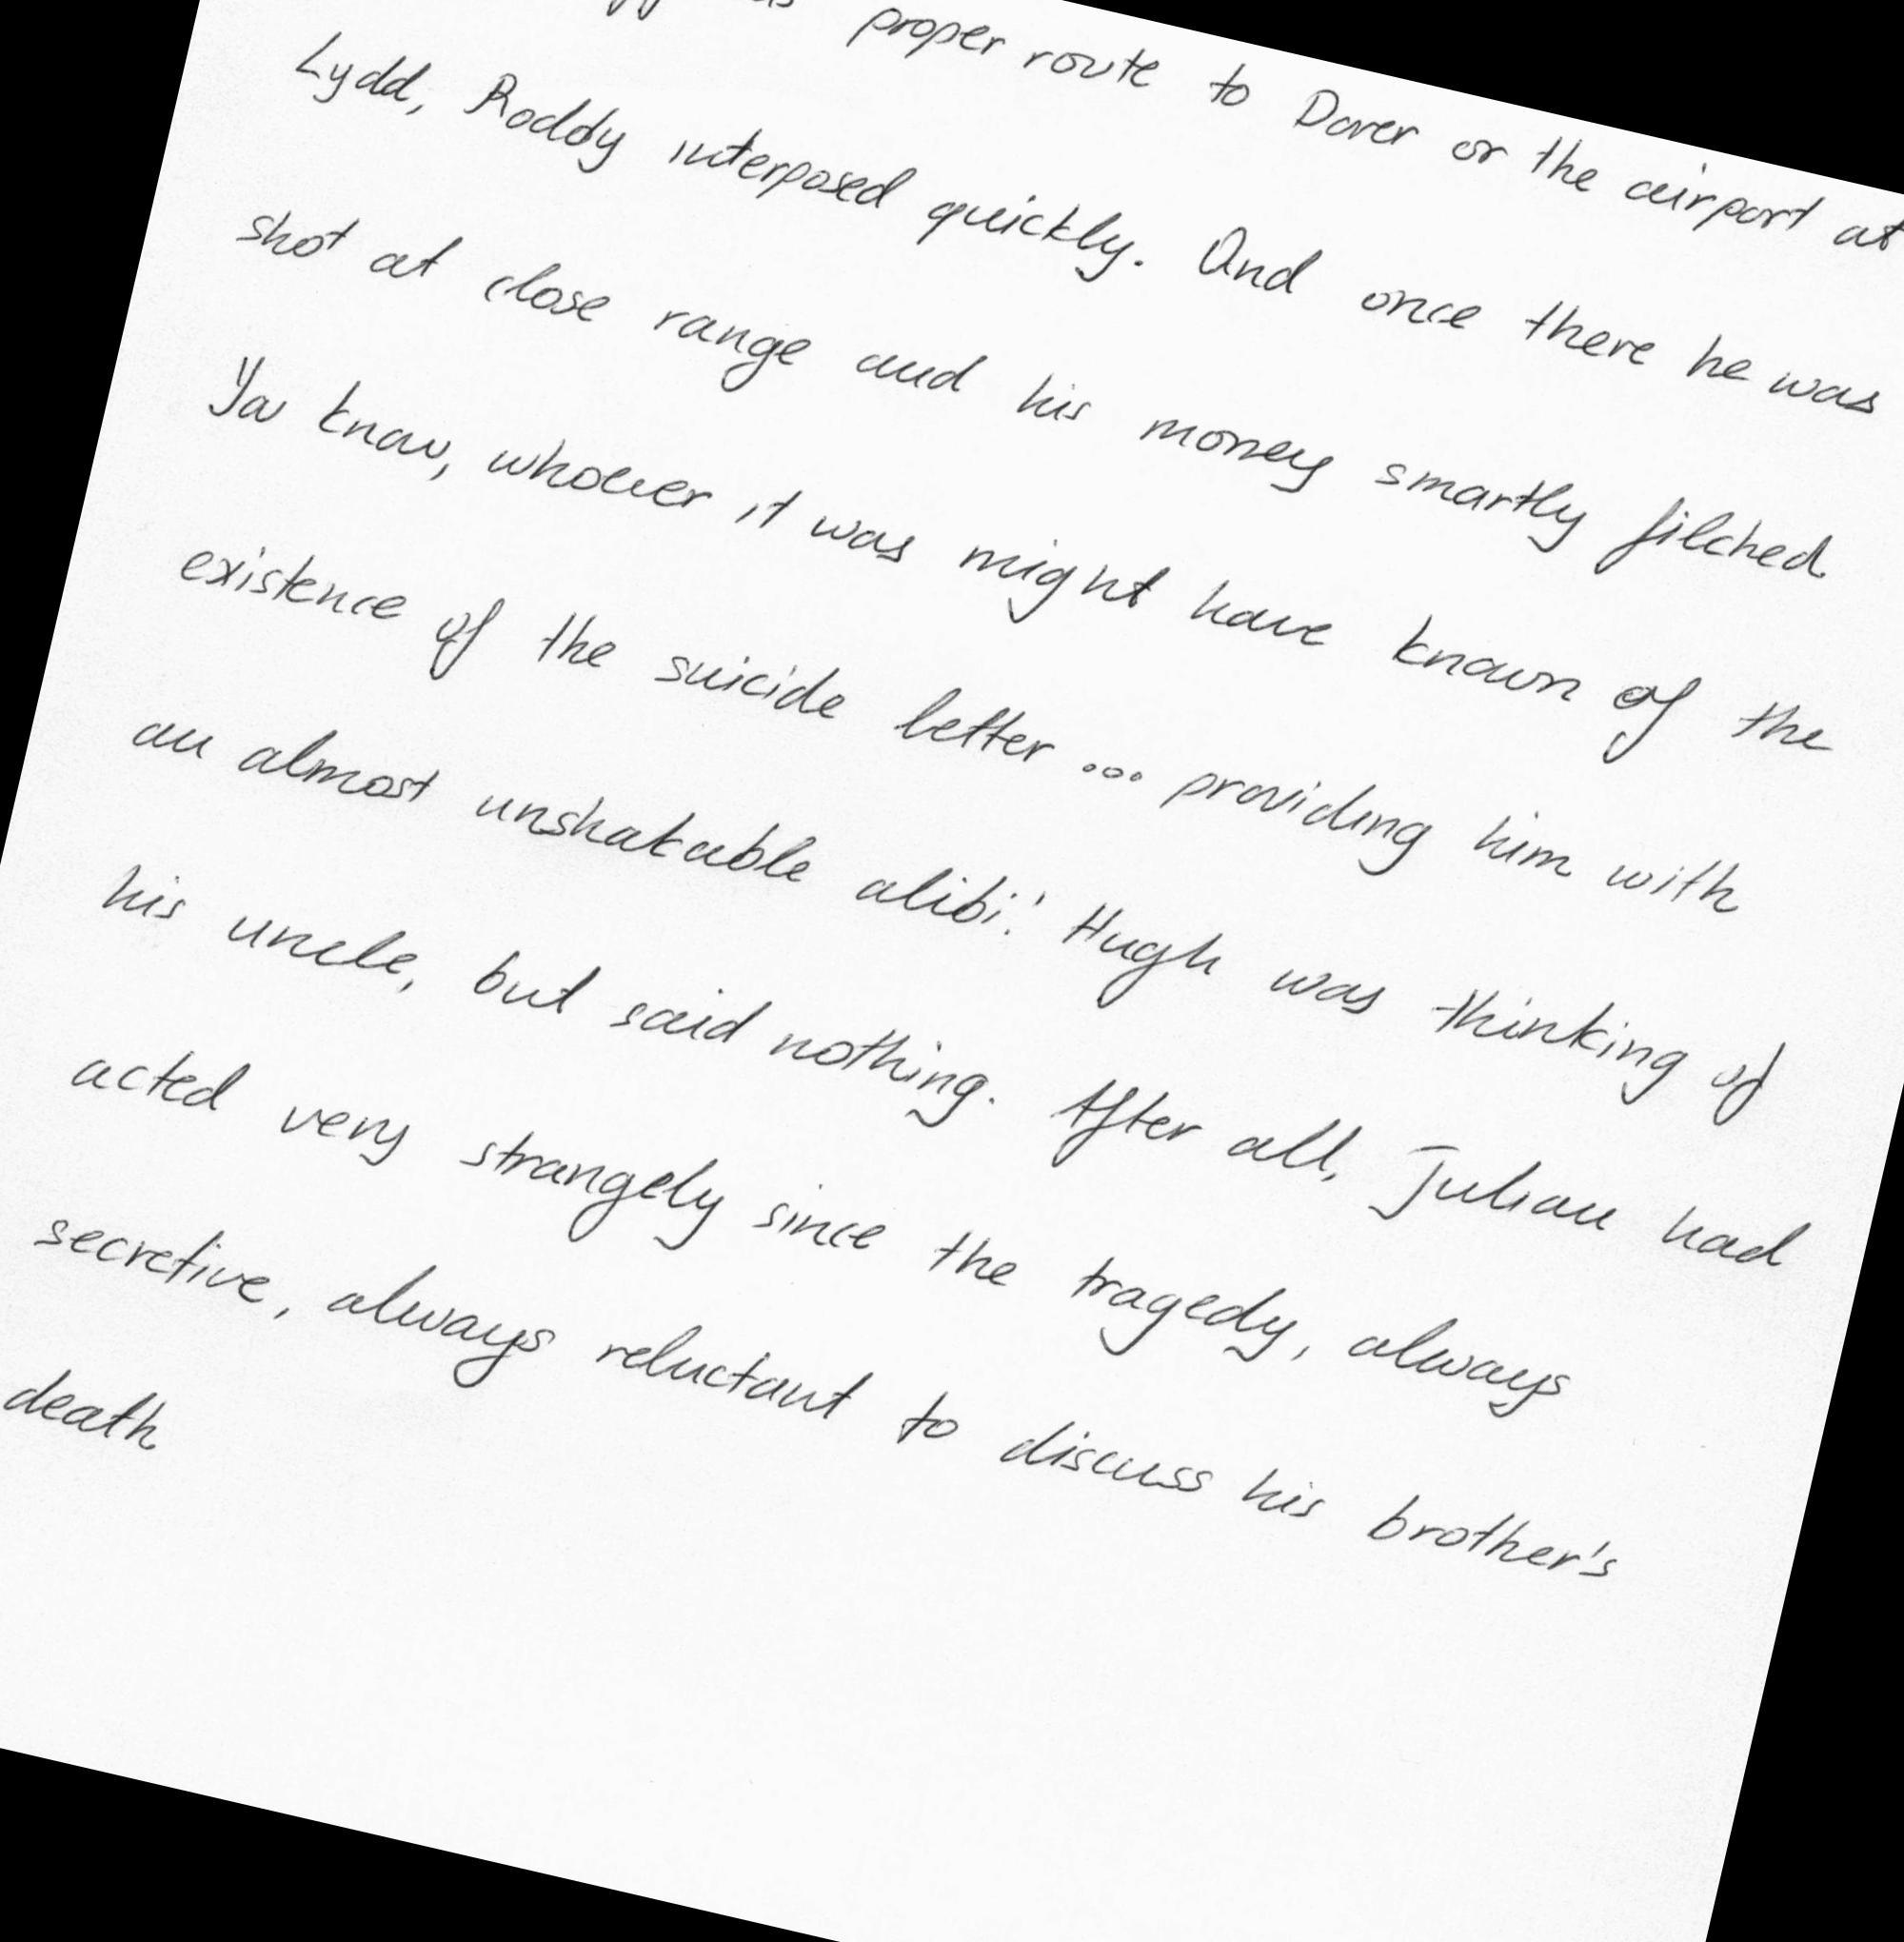 proper route to Dover or the airport at
Lydd, Roddy interposed quickly. And once there he was
shot at close range and his money smartly filched
Ya know, whoever it was might have known of the
existence of the suicide letter ... providing him with
an almost unshakable alibi! Hugh was thinking of
his uncle, but said nothing. After all, Julian had
acted very strangely since the tragedy, always
secretive, always reluctant to discuss his brother's
death